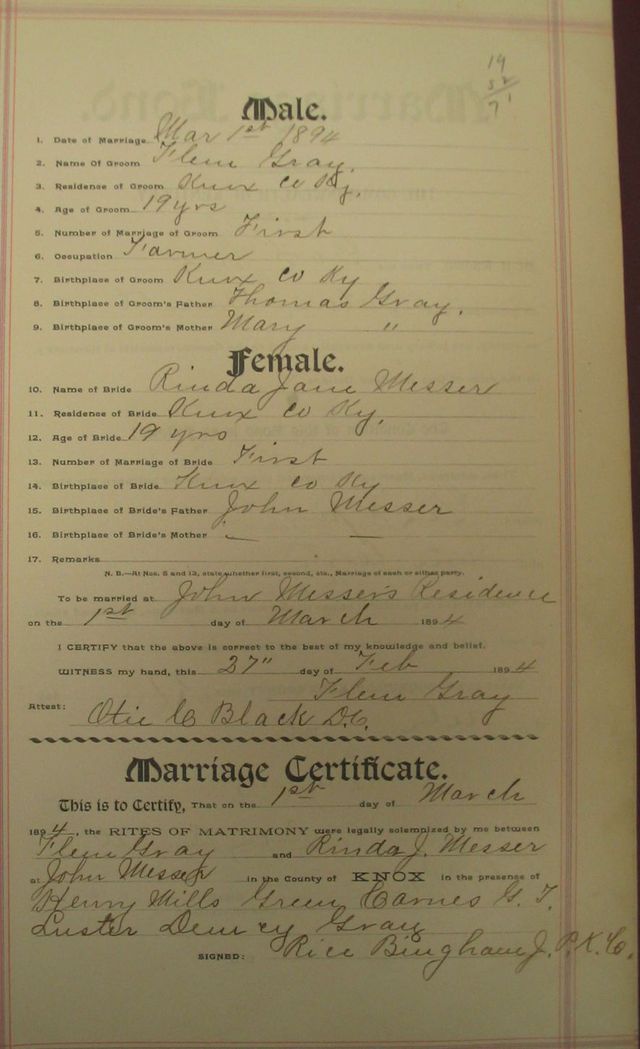 19
52
71
Male.
1. Date of Marriage Mar 1st 1894
2. Name Of Groom Flem Gray.
3. Residence of Groom Knox Co Ky.
4. Age of Groom 19 yrs
5. Number of Marriage of Groom First
6. Occupation Farmer
7. Birthplace of Groom Knox Co Ky
8. Birthplace of Groom's Father Thomas Gray.
9. Birthplace of Groom's Mother Mary "
Female.
10. Name of Bride Rinda Jane Messer
11. Residence of Bride Knox Co Ky.
12. Age of Bride 19 yrs
13. Number of Marriage of Bride First
14. Birthplace of Bride Knox Co Ky
15. Birthplace of Bride's Father John Messer
16. Birthplace of Bride's Mother — —
17. Remarks
N. B.—At Nos. 5 and 13, state whether first, second, etc., Marriage of each or either party.
To be married at John Messers Residence
on the 1st day of March 1894
I CERTIFY that the above is correct to the best of my knowledge and belief.
WITNESS my hand, this 27" day of Feb 1894
Flem Gray
Attest: Otie C Black D.C.
Marriage Certificate.
This is to Certify, That on the 1st day of March
1894, the RITES OF MATRIMONY were legally solemnized by me between
Flem Gray and Rinda J. Messer
at John Messer in the County of KNOX in the presence of
Henry Mills Green Carnes G. T.
Luster Gray
SIGNED: Rice Bingham J. P. K. C.